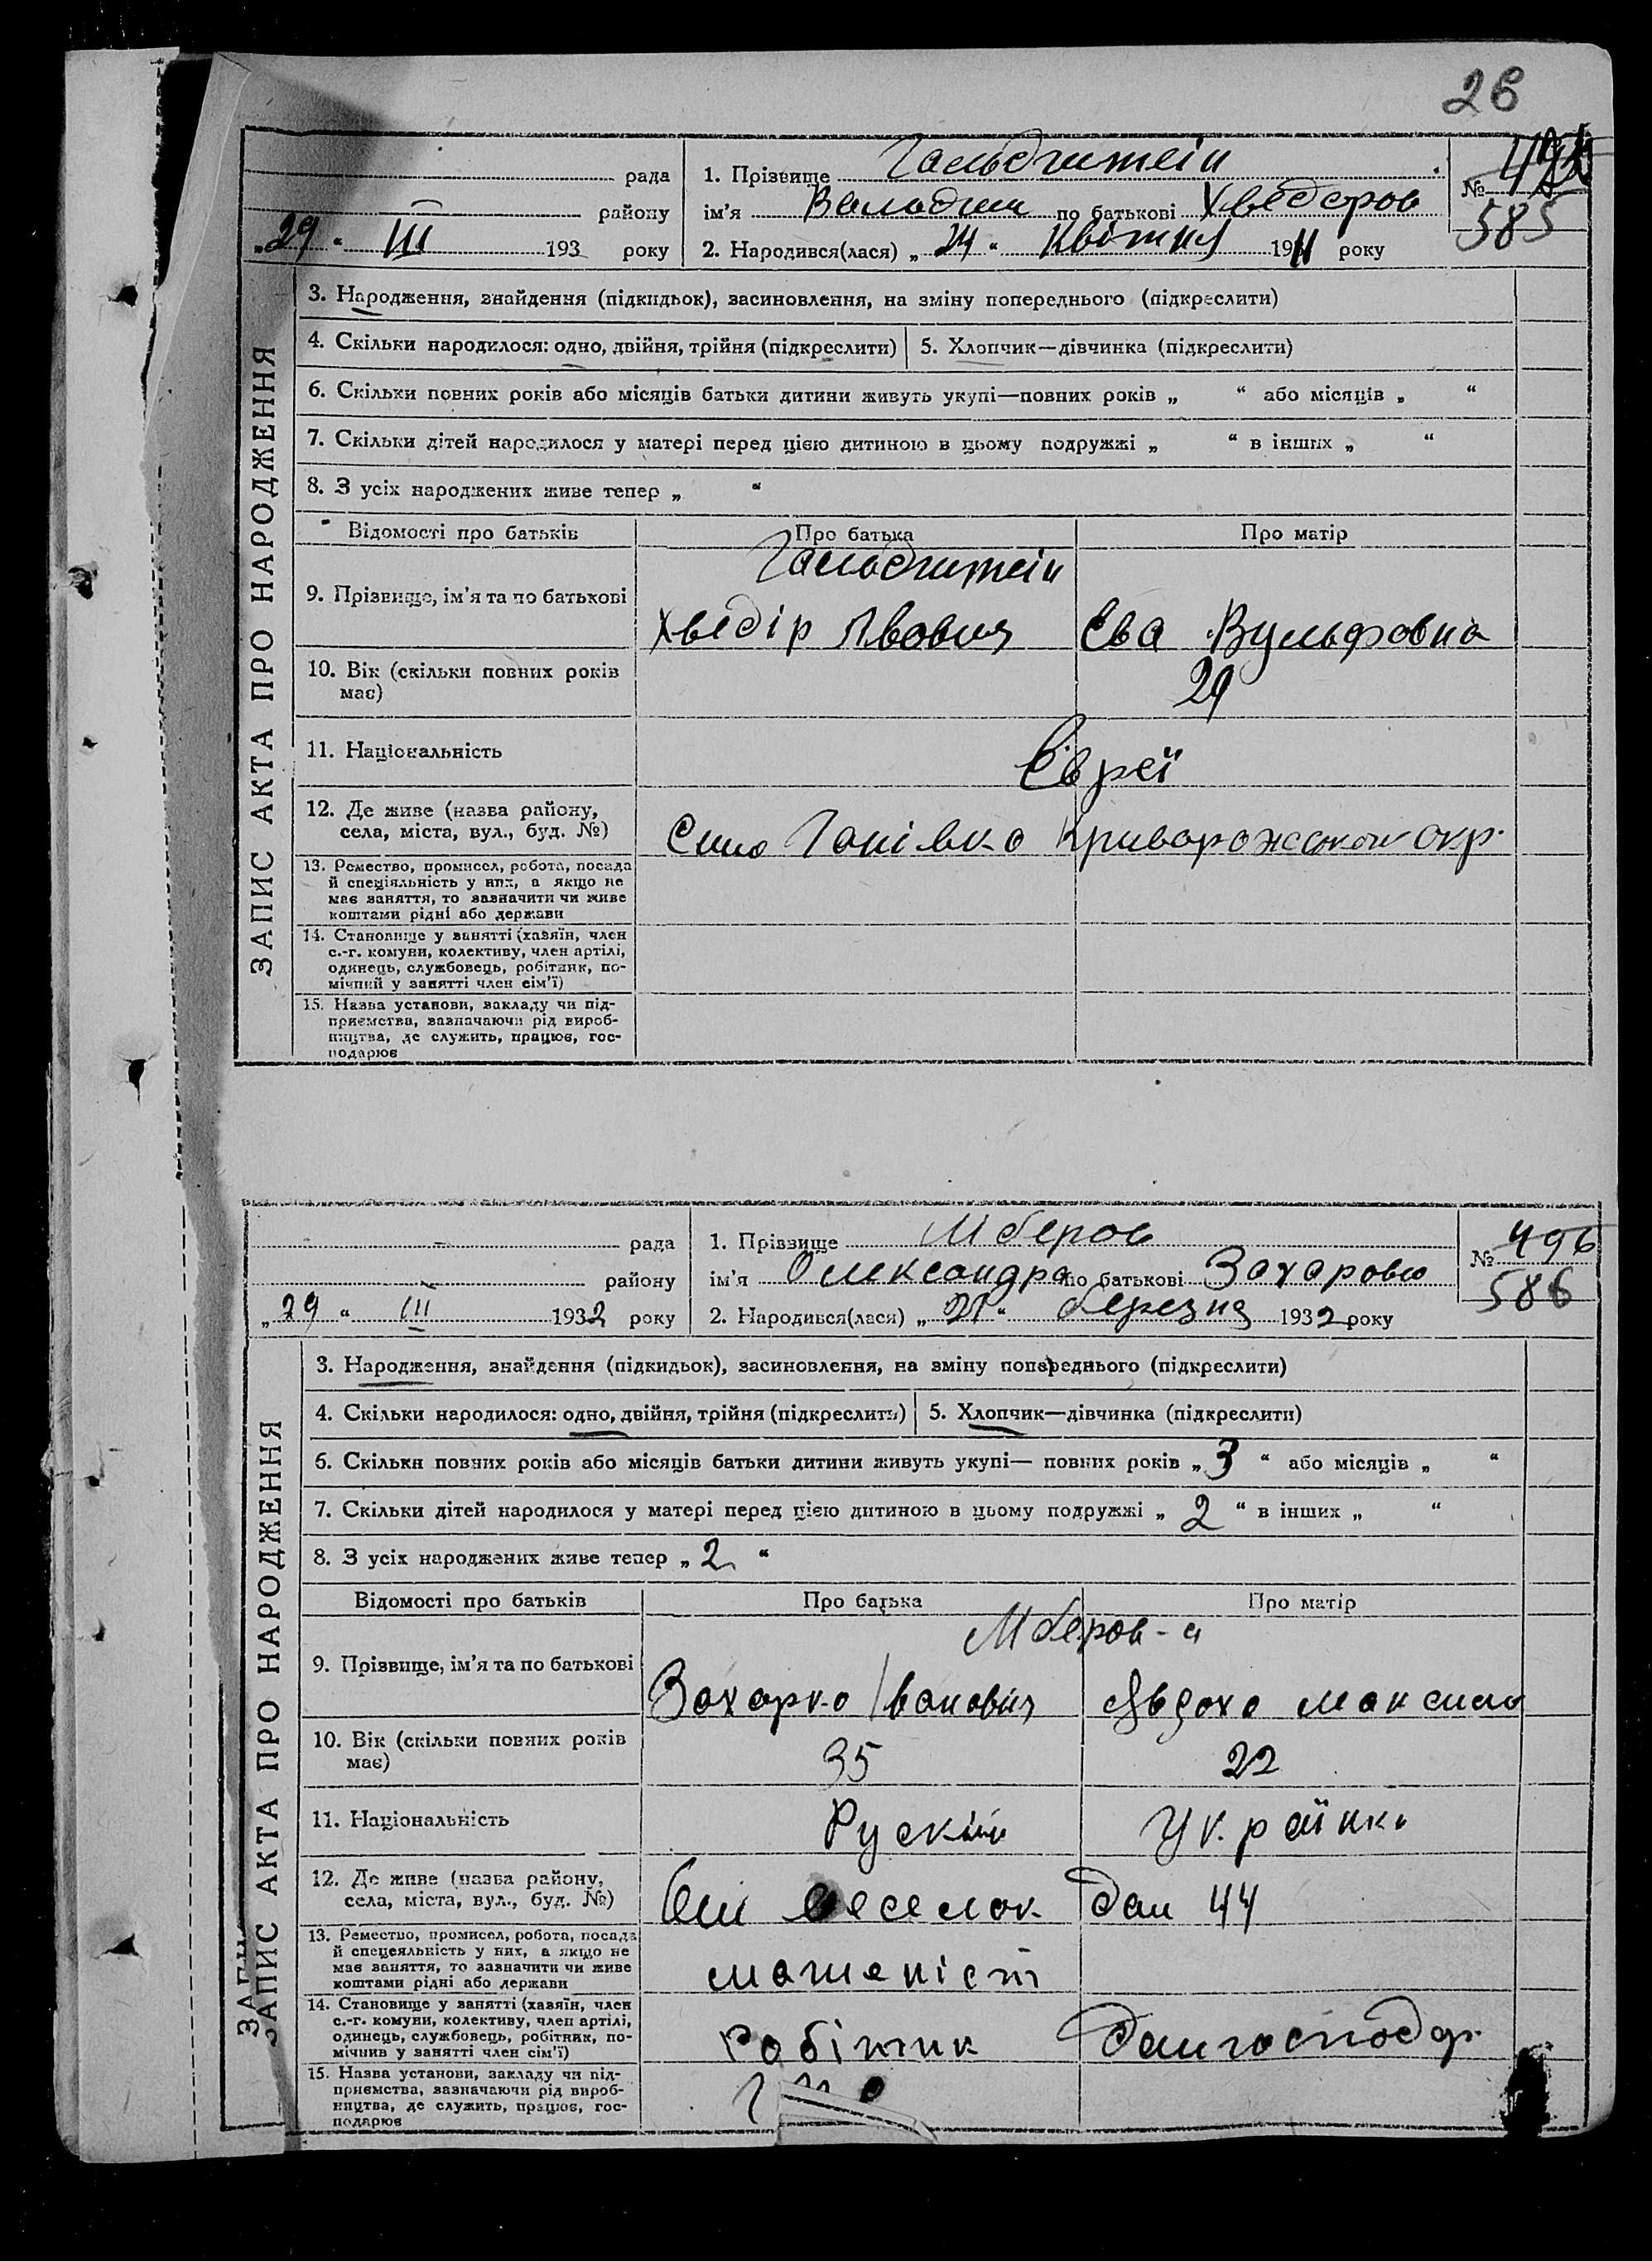 26
рада
району
„29“ III 193 року
1. Прізвище Гольдштеін
ім'я Володим по батькові Хведоров
2. Народився(лася) „24“ Квітня 1911 року
№
585
ЗАПИС АКТА ПРО НАРОДЖЕННЯ
3. Народження, знайдення (підкидьок), засиновлення, на зміну попереднього (підкреслити)
4. Скільки народилося: одно, двійня, трійня (підкреслити)
5. Хлопчик—дівчинка (підкреслити)
6. Скільки повних років або місяців батьки дитини живуть укупі—повних років „ “ або місяців „ “
7. Скільки дітей народилося у матері перед цією дитиною в цьому подружжі „ “ в інших „ “
8. З усіх народжених живе тепер „ “
Відомості про батьків
Про батька
Про матір
9. Прізвище, ім'я та по батькові
Гольдштеін
Хведір Львович
Ева Вульфовна
10. Вік (скільки повних років
має)
29
11. Національність
Євреї
12. Де живе (назва району,
села, міста, вул., буд. №)
Село Ганівка Криворожской окр.
13. Ремество, промисел, робота, посада
й спеціяльність у них, а якщо не
має заняття, то зазначити чи живе
коштами рідні або держави
14. Становище у занятті (хазяїн, член
с.-г. комуни, колективу, член артілі,
одинець, службовець, робітник, по-
мічний у занятті член сім'ї)
15. Назва установи, закладу чи під-
приємства, зазначаючи рід вироб-
ництва, де служить, працює, гос-
подарює
рада
району
„29“ III 1932 року
1. Прізвище
ім'я Олександра по батькові Захаровю
2. Народився(лася) „21“ березня 1932 року
№ 496
586
ЗАПИС АКТА ПРО НАРОДЖЕННЯ
3. Народження, знайдення (підкидьок), засиновлення, на зміну попереднього (підкреслити)
4. Скільки народилося: одно, двійня, трійня (підкреслить)
5. Хлопчик—дівчинка (підкреслити)
6. Скільки повних років або місяців батьки дитини живуть укупі— повних років „3“ або місяців „ “
7. Скільки дітей народилося у матері перед цією дитиною в цьому подружжі „2“ в інших „ “
8. З усіх народжених живе тепер „2“
Відомості про батьків
Про батька
Про матір
9. Прізвище, ім'я та по батькові
Захарко Іванович
Явдоха Максимо
10. Вік (скільки повних років
має)
35
22
11. Національність
Рускій
Украйнки
12. Де живе (назва району,
села, міста, вул., буд. №)
веселок дом 44
13. Ремество, промисел, робота, посада
й спецеяльність у них, а якщо не
має заняття, то зазначити чи живе
коштами рідні або держави
машеніст
14. Становище у занятті (хазяїн, член
с.-г. комуни, колективу, член артілі,
одинець, службовець, робітник, по-
мічник у занятті член сім'ї)
робітник
домгосподар.
15. Назва установи, закладу чи під-
приємства, зазначаючи рід вироб-
ництва, де служить, працює, гос-
подарює